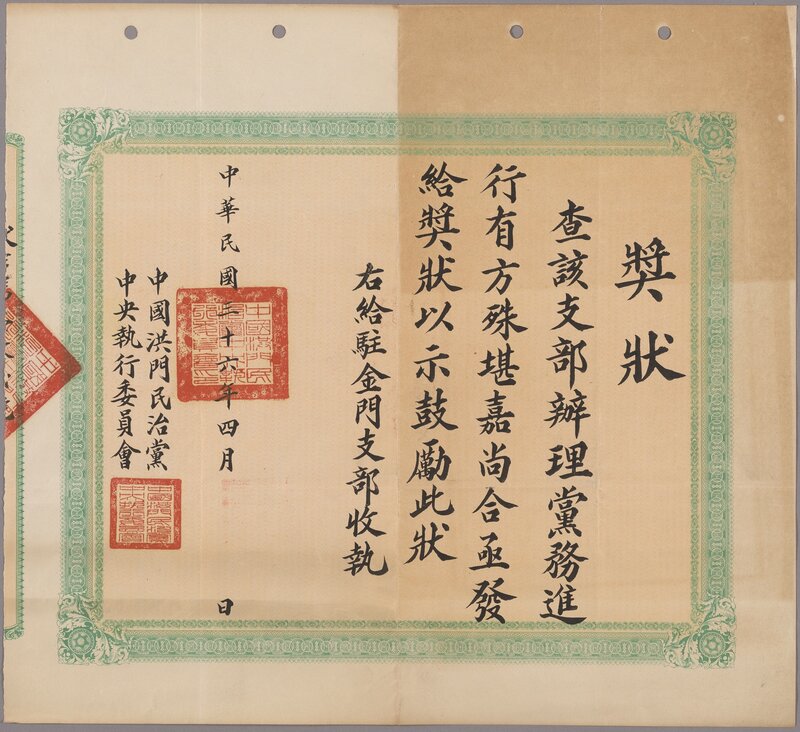 獎狀
查該支部辦理黨務進
行有方殊堪嘉尚合亟發
給獎狀以示鼓勵此狀
右給駐金門支部收執
中華民國三十六年四月 日
中國洪門民治黨
中央執行委員會